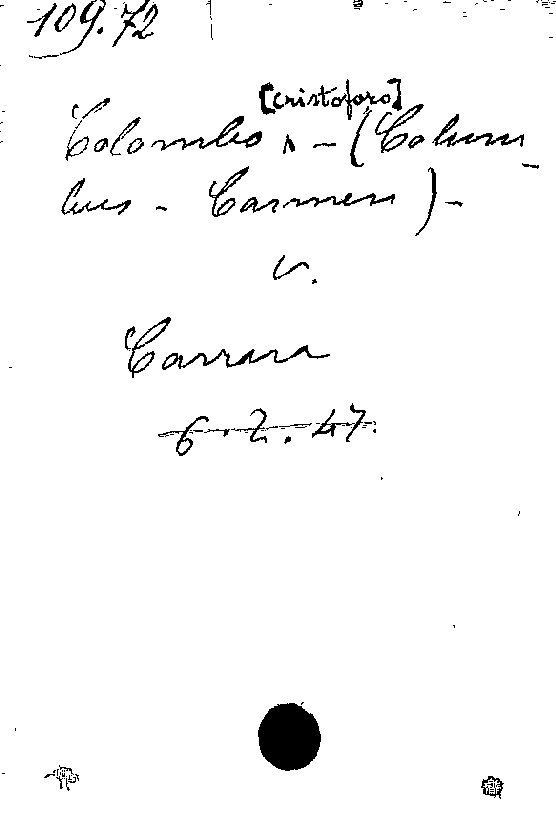 109.72
[cristoforo]
Colombo ʌ - (Colum_
bus - Carmen) -
v.
Carrara
6.2.47.